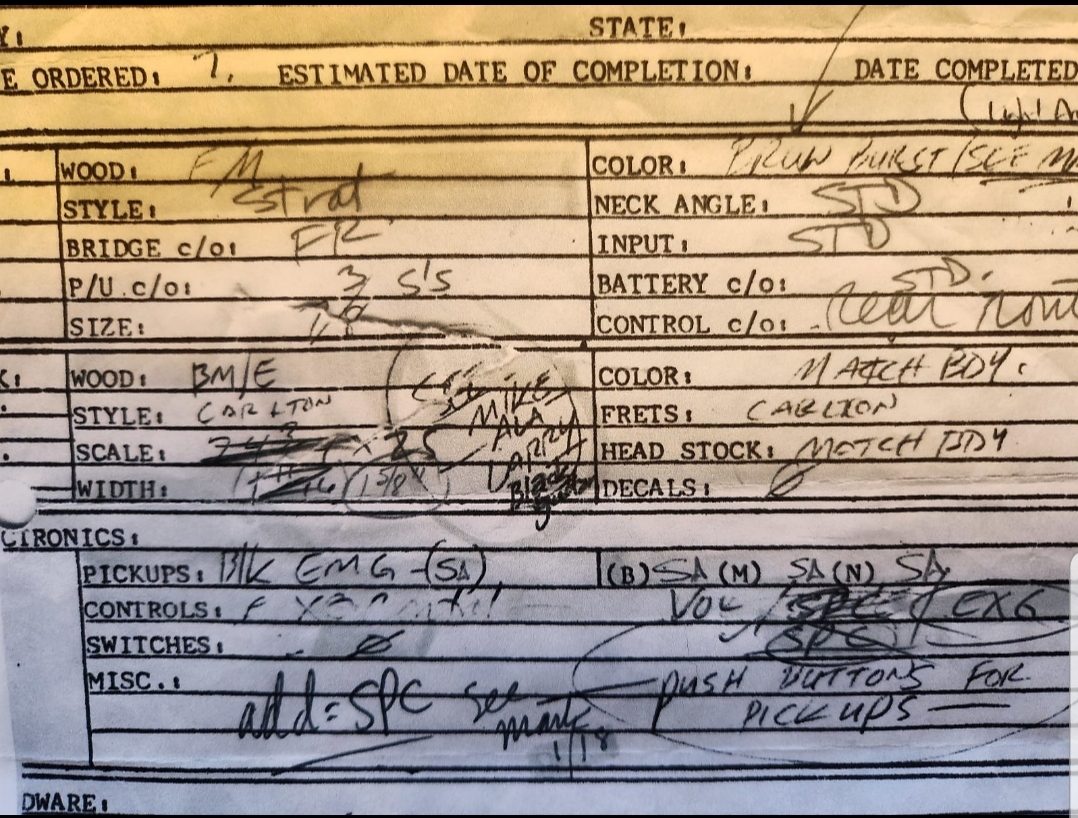 Y: STATE:
E ORDERED: 7. ESTIMATED DATE OF COMPLETION: DATE COMPLETED
WOOD: FM COLOR: BRUW BURST/SEE
STYLE: Strat NECK ANGLE: STD
BRIDGE c/o: FR INPUT: STD
P/U.c/o: 3 S'S BATTERY c/o: STD.
SIZE: 7/8 CONTROL c/o: Rear
WOOD: BM/E COLOR: MATCH BDY.
STYLE: CARLTON FRETS: CARLTON
SCALE: 25 HEAD STOCK: MATCH BDY
WIDTH: 1 5/8" DECALS: Ø
SEE MIKE
LARRY
CTRONICS:
PICKUPS: Blk EMG-(SA) (B) SA (M) SA (N) SA
CONTROLS: VOL / SPC / EXG
SPC
SWITCHES: Ø
MISC.: PUSH BUTTONS FOR
PICKUPS
add: SPC see
mark
1/18
DWARE: